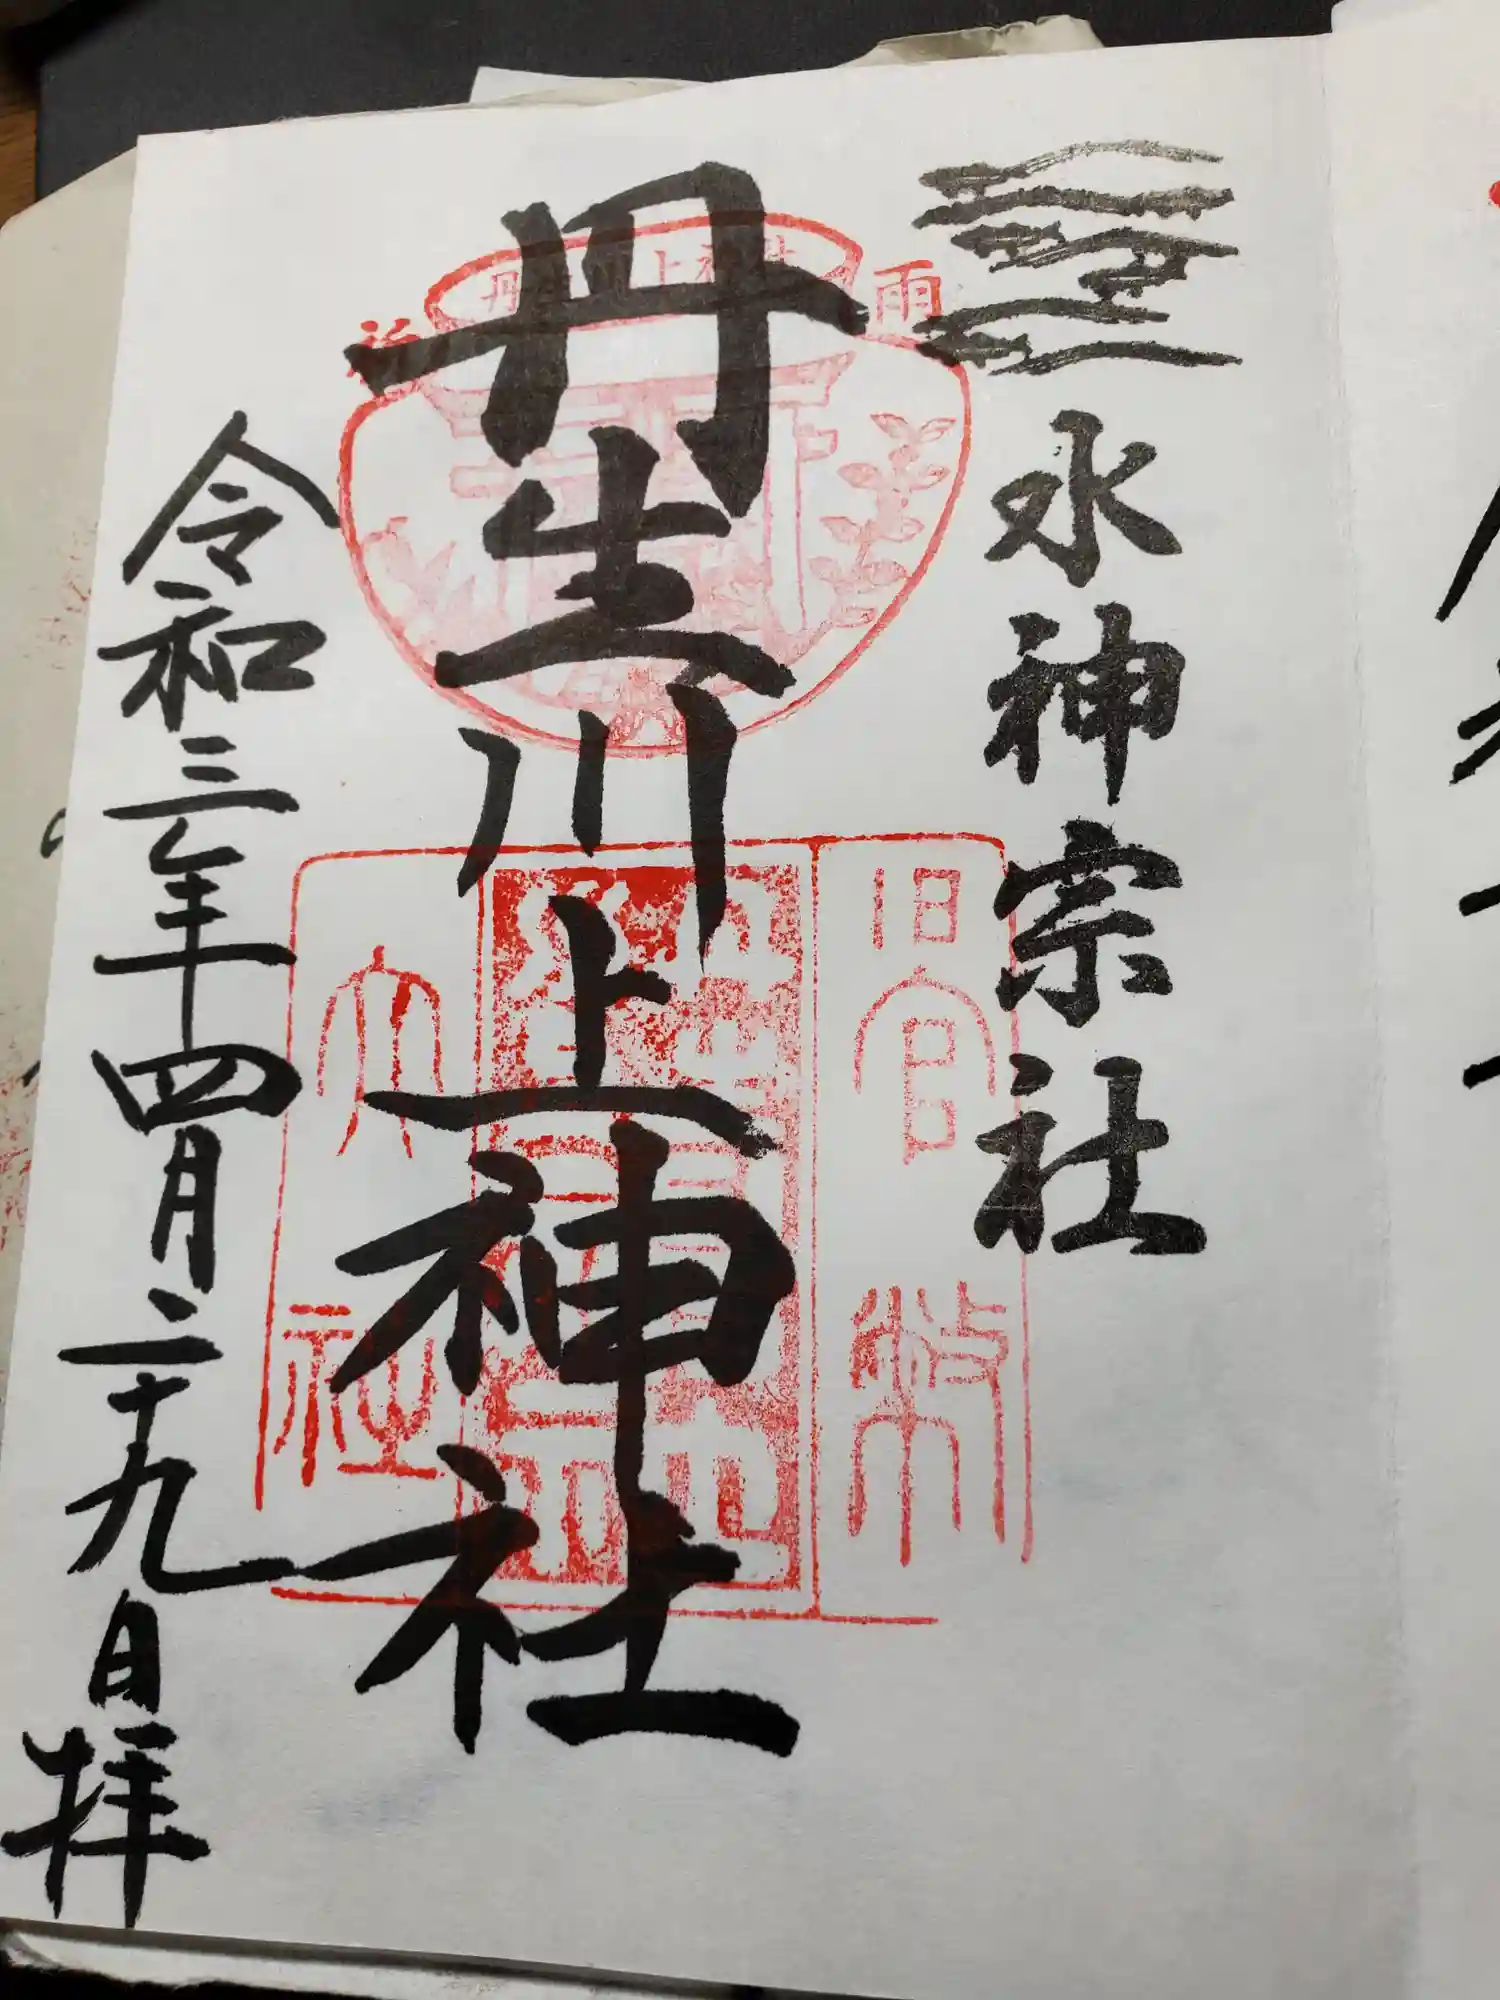 水神宗社
丹生川上神社
令和三年四月二十九日拝
雨
旧官幣
大社